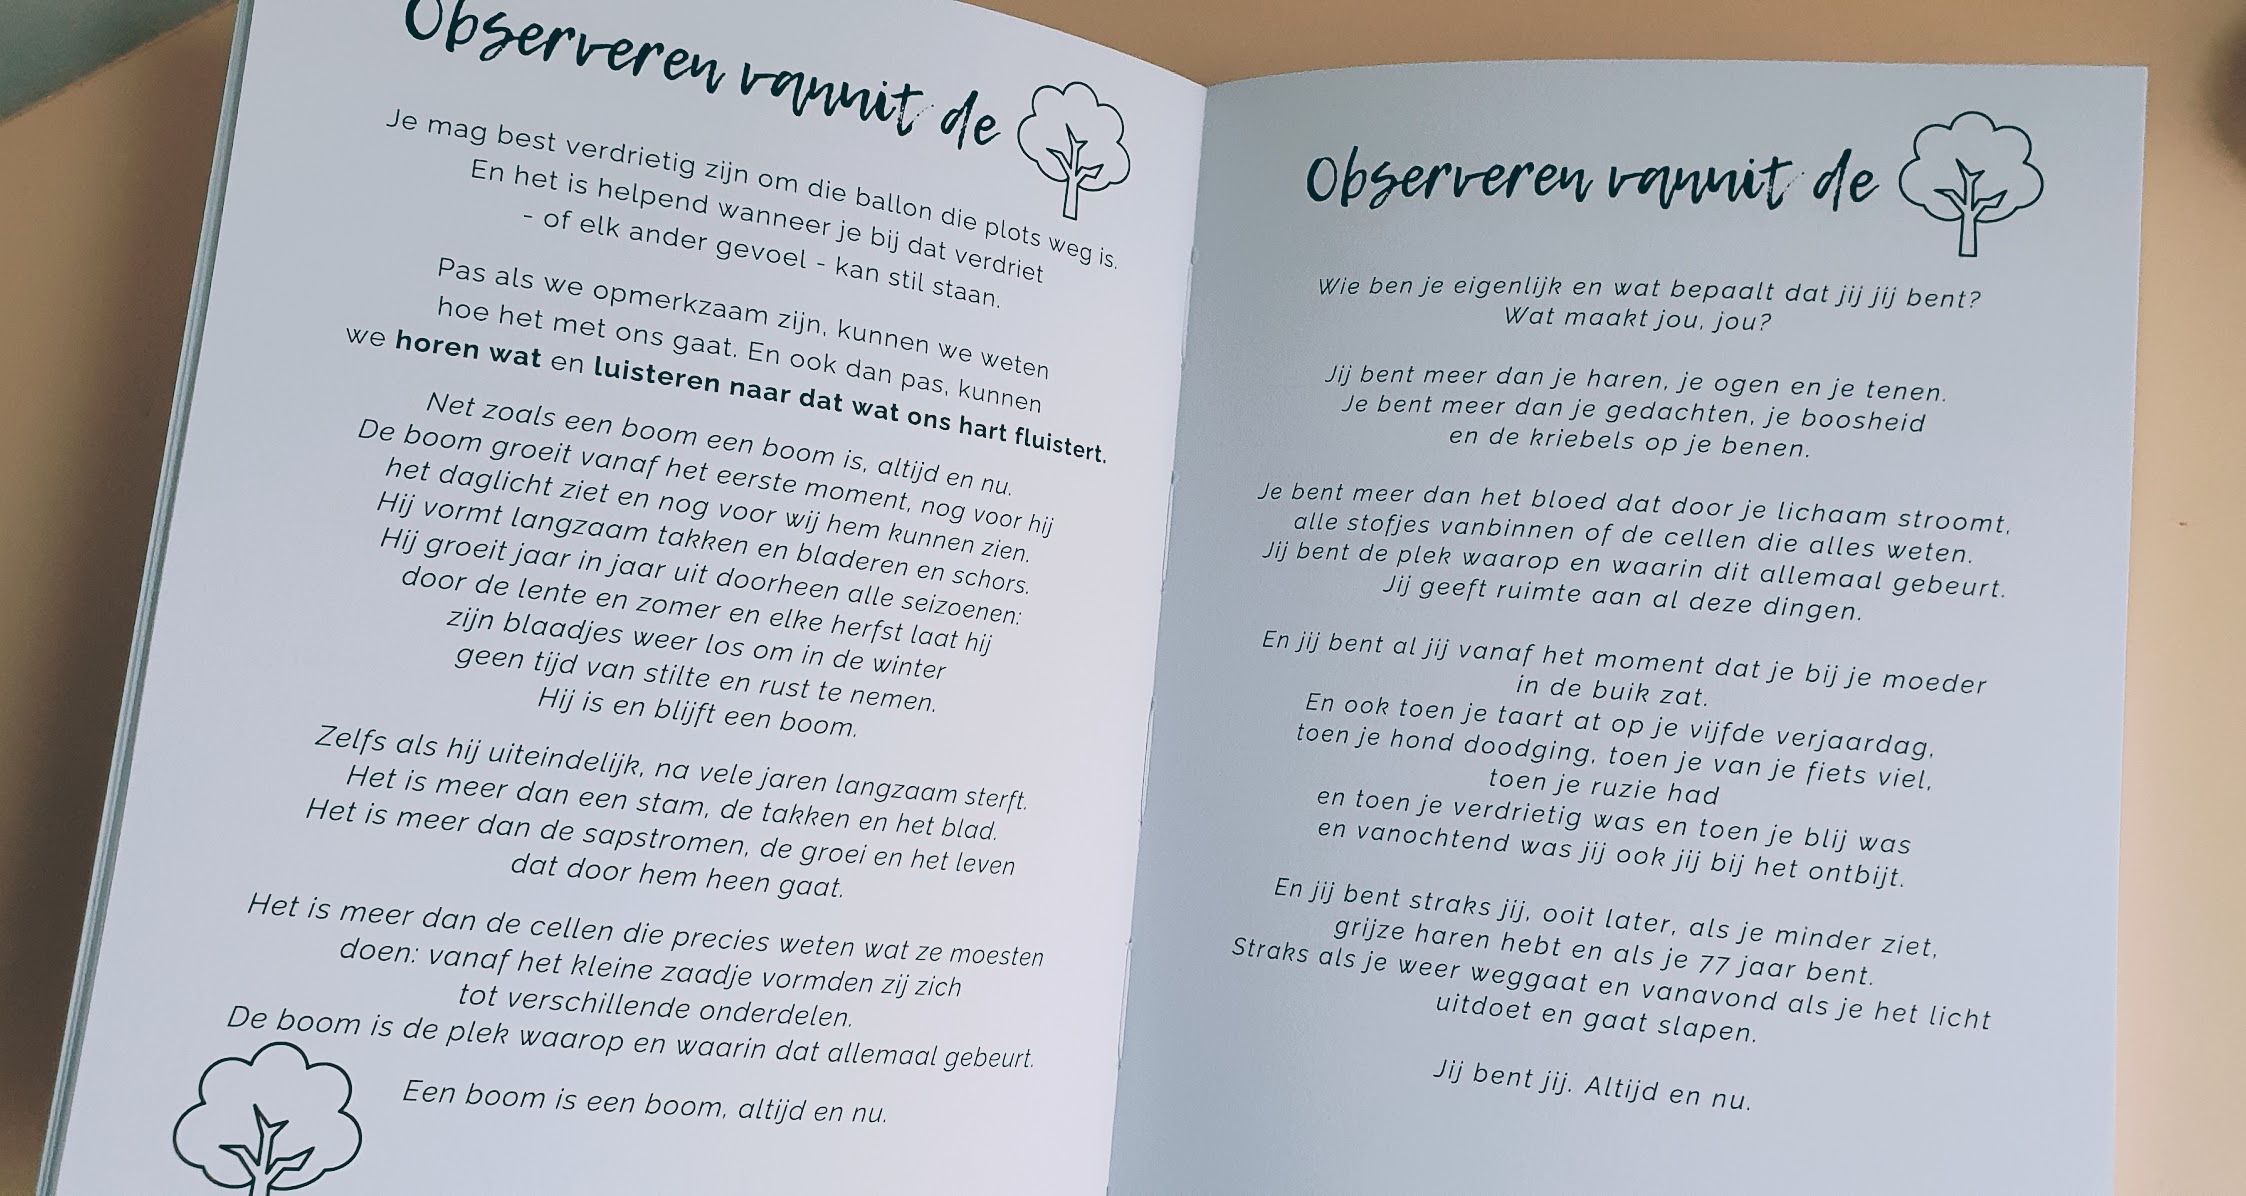 Observeren vanuit de
Je mag best verdrietig zijn om die ballon die plots weg is.
En het is helpend wanneer je bij dat verdriet
- of elk ander gevoel - kan stil staan.
Pas als we opmerkzaam zijn, kunnen we weten
hoe het met ons gaat. En ook dan pas, kunnen
we horen wat en luisteren naar dat wat ons hart fluistert.
Net zoals een boom een boom is, altijd en nu.
De boom groeit vanaf het eerste moment, nog voor hij
het daglicht ziet en nog voor wij hem kunnen zien.
Hij vormt langzaam takken en bladeren en schors.
Hij groeit jaar in jaar uit doorheen alle seizoenen:
door de lente en zomer en elke herfst laat hij
zijn blaadjes weer los om in de winter
geen tijd van stilte en rust te nemen.
Hij is en blijft een boom.
Zelfs als hij uiteindelijk, na vele jaren langzaam sterft.
Het is meer dan een stam, de takken en het blad.
Het is meer dan de sapstromen, de groei en het leven
dat door hem heen gaat.
Het is meer dan de cellen die precies weten wat ze moesten
doen: vanaf het kleine zaadje vormden zij zich
tot verschillende onderdelen.
De boom is de plek waarop en waarin dat allemaal gebeurt.
Een boom is een boom, altijd en nu.
Observeren vanuit de
Wie ben je eigenlijk en wat bepaalt dat jij jij bent?
Wat maakt jou, jou?
Jij bent meer dan je haren, je ogen en je tenen.
Je bent meer dan je gedachten, je boosheid
en de kriebels op je benen.
Je bent meer dan het bloed dat door je lichaam stroomt,
alle stofjes vanbinnen of de cellen die alles weten.
Jij bent de plek waarop en waarin dit allemaal gebeurt.
Jij geeft ruimte aan al deze dingen.
En jij bent al jij vanaf het moment dat je bij je moeder
in de buik zat.
En ook toen je taart at op je vijfde verjaardag,
toen je hond doodging, toen je van je fiets viel,
toen je ruzie had
en toen je verdrietig was en toen je blij was
en vanochtend was jij ook jij bij het ontbijt.
En jij bent straks jij, ooit later, als je minder ziet,
grijze haren hebt en als je 77 jaar bent.
Straks als je weer weggaat en vanavond als je het licht
uitdoet en gaat slapen.
Jij bent jij. Altijd en nu.